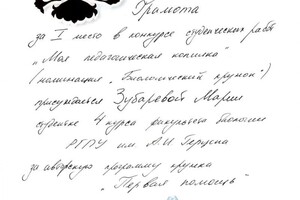 Грамота
за I место в конкурсе студенческих работ
„Моя педагогическая копилка"
(номинация „Биологический кружок")
присуждается Зубаревой Марии
студентке 4 курса факультета биологии
РГПУ им. А.И Герцена
за авторскую программу кружка
„Первая помощь"